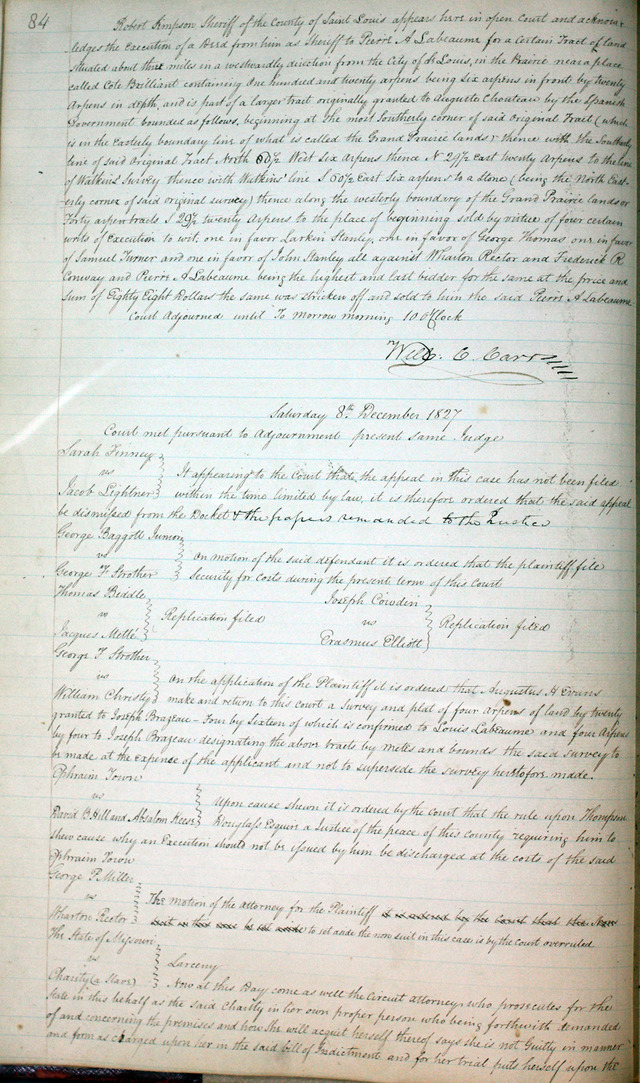 84
Robert Simpson Sheriff of the County of Saint Louis appears here in open Court and acknow-
ledges the Execution of a Deed from him as Sheriff to Pierre A Labeaume for a Certain Tract of land
situated about three miles in a westwardly direction from the City of St Louis, in the Prairie near a place
called Cote Brilliant containing One hundred and twenty arpens being six arpens in front by twenty
Arpens in depth, and is part of a larger tract originally granted to Auguste Chouteau by the Spanish
Government bounded as follows, beginning at the most Southerly corner of said Original Tract (which
is in the Easterly boundary line of what is called the Grand Prairie lands & thence with the Southerly
line of said Original Tract North 60½ West Six Arpens thence N 29½ East twenty Arpens to the line
of Watkins' Survey thence with Watkins' line S 60½ East Six arpens to a Stone (being the North East-
erly corner of said original survey) thence along the westerly boundary of the Grand Prairie lands or
Forty arpen tracts S 29½ twenty Arpens to the place of beginning sold by virtue of four certain
writs of Execution to wit, one in favor Larkin Stanly, one in favor of George Thomas one in favor
of Samuel Turner and one in favor of John Stanley all against Wharton Rector and Frederick R
Conway and Pierre A Labeaume being the highest and last bidder for the same at the price and
sum of Eighty Eight Dollars the same was stricken off and sold to him the said Pierre A Labeaume
Court Adjourned until To Morrow morning 10 O'Clock
Will. C. Carr
Saturday 8th December 1827
Court met pursuant to Adjournment present same Judge
Sarah Finney
vs
Jacob Lightner
It appearing to the Court that the appeal in this case has not been filed
within the time limited by law, it is therefore ordered that the said appeal
be dismissed from the Docket & the papers remanded to the Justice
George Baggott Junior
vs
George F Strother
On motion of the said defendant it is ordered that the plaintiff file
Security for costs during the present term of this Court
Thomas Biddle
vs
Jacques Metté
Replication filed
Joseph Cowdin
vs
Erasmus Elliott
Replication filed
George F Strother
vs
William Christy
On the application of the Plaintiff it is ordered that Augustus H Evans
make and return to this court a Survey and plat of four arpens of land by twenty
granted to Joseph Brazeau - Four by Sixteen of which is confirmed to Louis Labeaume and four Arpens
by four to Joseph Brazeau designating the above tracts by metes and bounds the said survey to
be made at the expense of the applicant and not to supersede the survey heretofore made.
Ephraim Town
vs
David B Hill and Absalon Keese
Upon cause shewn it is ordered by the Court that the rule upon Thompson
Douglass Esquire a Justice of the peace of this county requiring him to
shew cause why an Execution should not be issued by him be discharged at the costs of the said
Ephraim Town
George P. Miller
vs
Wharton Rector
The motion of the attorney for the Plaintiff it is ordered by the Court that the Non
suit in this case be set aside to set aside the non suit in this case is by the court overruled
The State of Missouri
vs
Charity (a Slave)
Larceny
Now at this Day come as well the Circuit attorney who prosecutes for the
State in this behalf as the said Charity in her own proper person who being forthwith demanded
of and concerning the premises and how she will acquit herself thereof says she is not Guilty in manner
and form as charged upon her in the said bill of Indictment and for her trial puts herself upon the